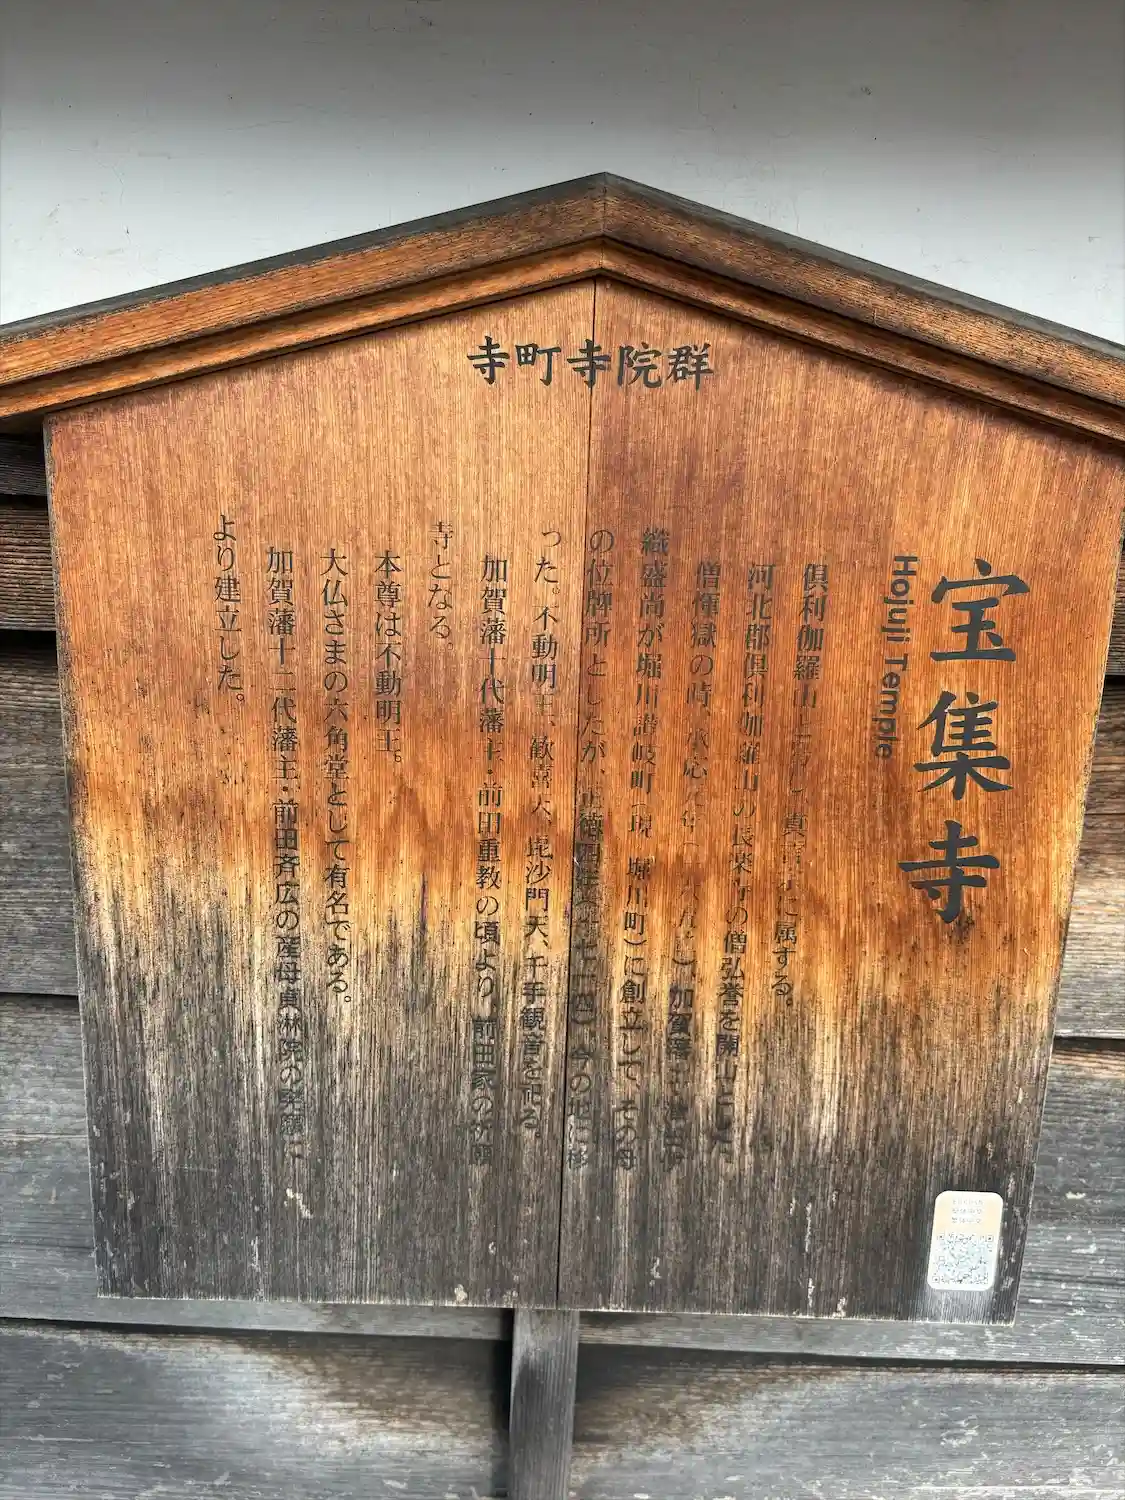 寺町寺院群
宝集寺
Hojuji Temple
倶利伽羅山と号し、真言宗に属する。
河北郡倶利伽羅山の長楽寺の僧弘誉を開山とした
僧惲獄の時、承応 年( )、加賀藩
織盛尚が堀川讃岐町(現 堀川町)に創立して、その母
の位牌所としたが、正徳四年( 七一四)今の地に移
った。不動明王、歓喜天、毘沙門天、千手観音を祀る。
加賀藩十代藩主・前田重教の頃より、前田家の祈願
寺となる。
本尊は不動明王。
大仏さまの六角堂として有名である。
加賀藩十二代藩主・前田斉広の産母貞淋院の発願に
より建立した。